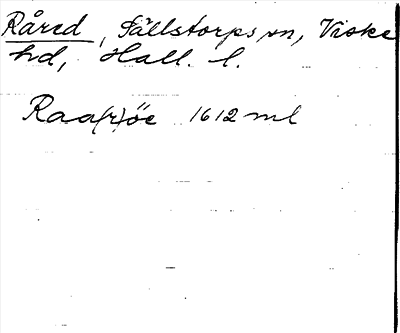 Råred, Sällstorps sn, Viske
hd, Hall. l.
Raa(r)öe 1612 ml